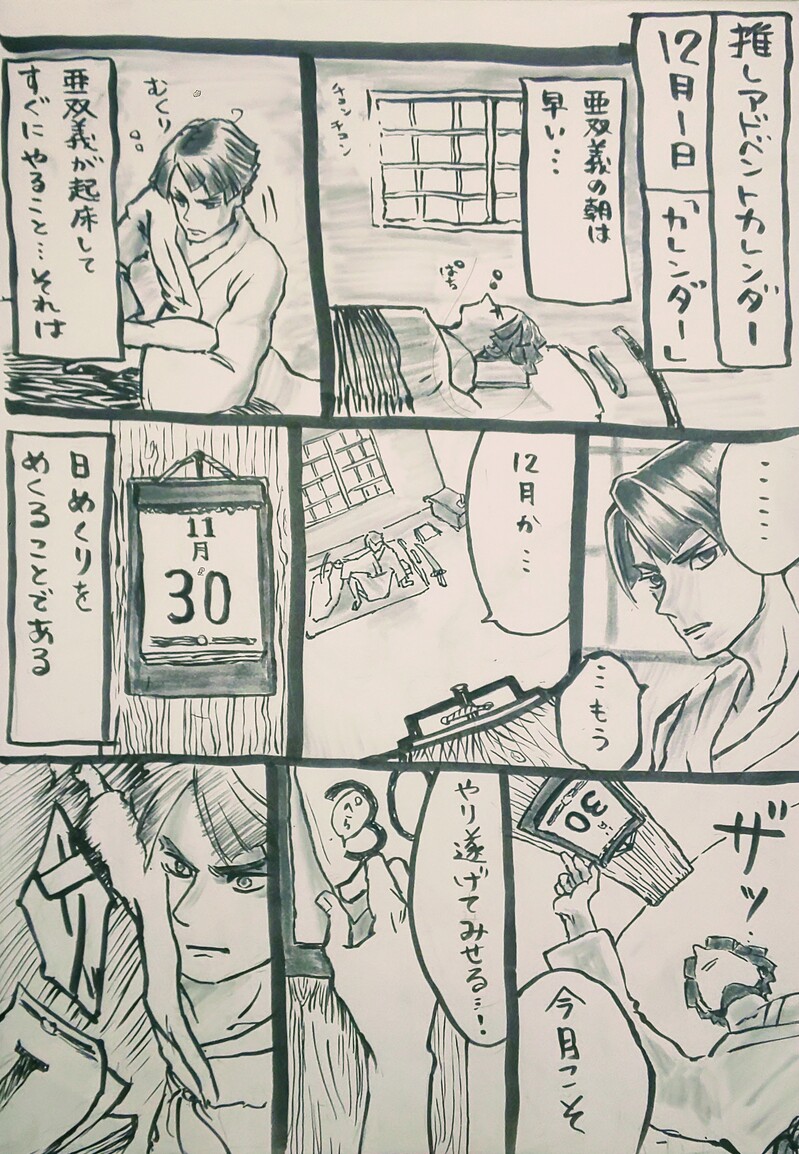 推しアドベントカレンダー
12月1日「カレンダー」
亜双義の朝は
早い…
チュンチュン
ぱち
むくり
亜双義が起床して
すぐにやること…それは
……
…もう
12月か…
11
月
30
日めくりを
めくることである
ザッ
30
今月こそ
やり遂げてみせる…!